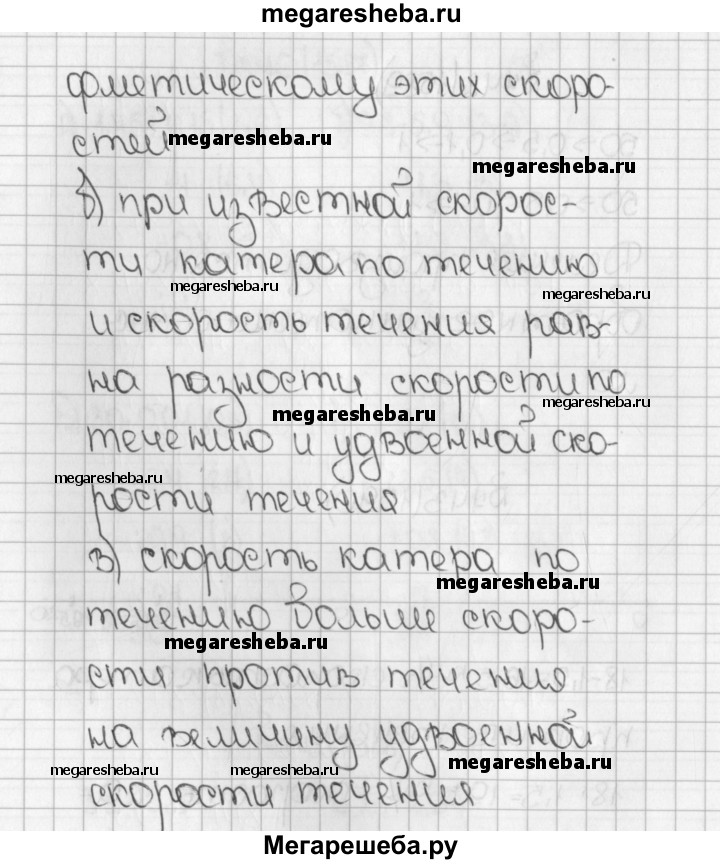 megaresheba.ru
фметическому этих скоро-
стей
megaresheba.ru
megaresheba.ru
б) при известной скорос-
ти катера по течению
megaresheba.ru
megaresheba.ru
и скорость течения рав-
на разности скорости по
megaresheba.ru
megaresheba.ru
течению и удвоенной ско-
megaresheba.ru
рости течения
в) скорость катера по
megaresheba.ru
течению больше скоро-
megaresheba.ru
сти против течения
на величину удвоенной
megaresheba.ru
megaresheba.ru
megaresheba.ru
скорости течения
Мегарешеба.ру